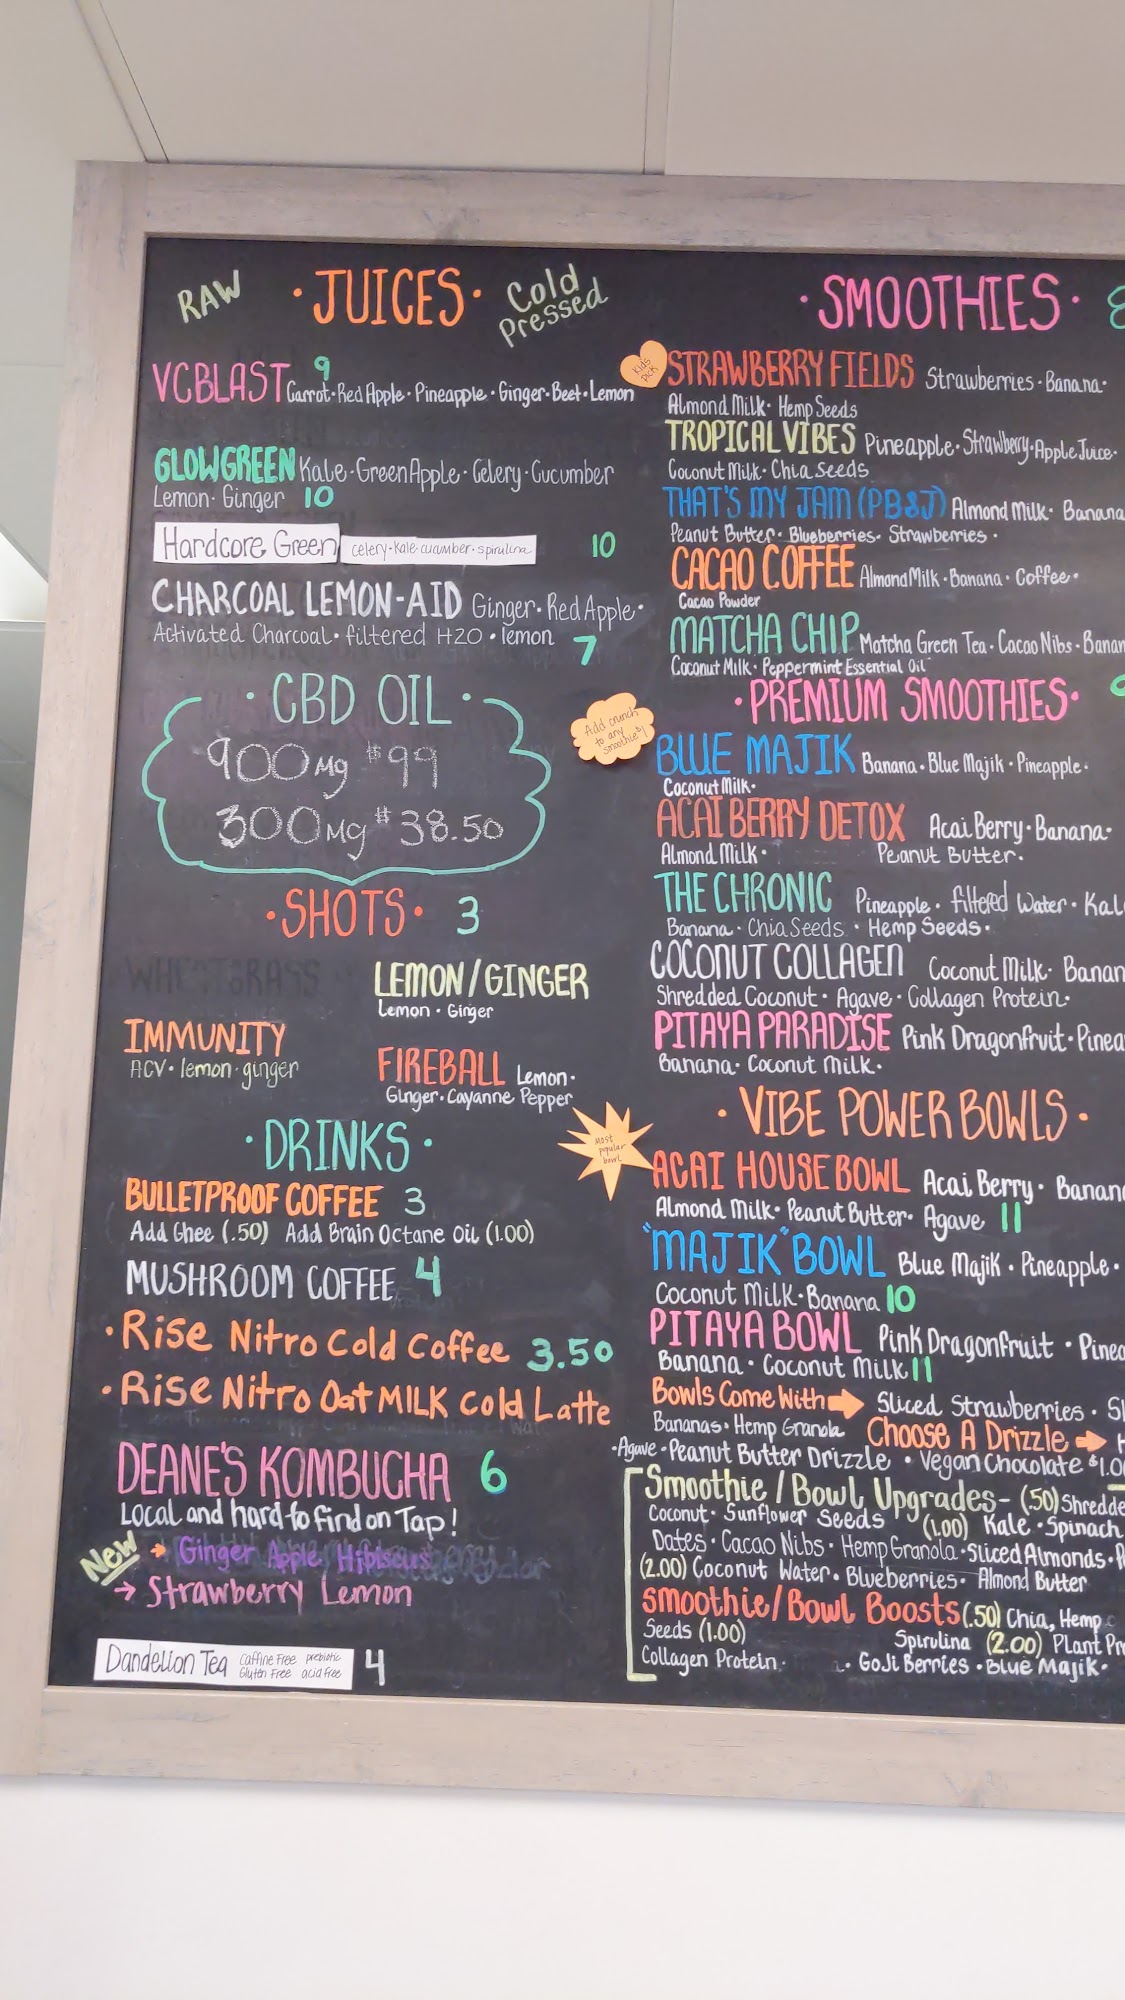 RAW · JUICES · Cold Pressed
VCBLAST 9 Carrot · Red Apple · Pineapple · Ginger · Beet · Lemon
GLOWGREEN Kale · Green Apple · Celery · Cucumber
Lemon · Ginger 10
Hardcore Green celery · kale · cucumber · spirulina 10
CHARCOAL LEMON-AID Ginger · Red Apple ·
Activated Charcoal · filtered H2O · lemon 7
· CBD OIL ·
900Mg $99
300Mg $38.50
· SHOTS · 3
WHEATGRASS
LEMON/GINGER
Lemon · Ginger
IMMUNITY
ACV · lemon · ginger
FIREBALL Lemon ·
Ginger · Cayanne Pepper
· DRINKS ·
BULLETPROOF COFFEE 3
Add Ghee (.50) Add Brain Octane Oil (1.00)
MUSHROOM COFFEE 4
· Rise Nitro Cold Coffee 3.50
· Rise Nitro Oat MILK Cold Latte
DEANE'S KOMBUCHA 6
Local and hard to find on Tap!
New → Ginger Apple Hibiscus
→ Strawberry Lemon
Dandelion Tea Caffine Free prebiotic
Gluten Free acid free 4
· SMOOTHIES ·
Kids Pick
STRAWBERRY FIELDS Strawberries · Banana ·
Almond Milk · Hemp Seeds
TROPICAL VIBES Pineapple · Strawberry · Apple Juice ·
Coconut Milk · Chia Seeds
THAT'S MY JAM (PB&J) Almond Milk · Banana
Peanut Butter · Blueberries · Strawberries ·
CACAO COFFEE Almond Milk · Banana · Coffee ·
Cacao Powder
MATCHA CHIP Matcha Green Tea · Cacao Nibs · Banan
Coconut Milk · Peppermint Essential Oil
· PREMIUM SMOOTHIES ·
Add crunch to any smoothie $1
BLUE MAJIK Banana · Blue Majik · Pineapple ·
Coconut Milk ·
ACAI BERRY DETOX Acai Berry · Banana ·
Almond Milk · Peanut Butter ·
THE CHRONIC Pineapple · filtered Water · Kal
Banana · Chia Seeds · Hemp Seeds ·
COCONUT COLLAGEN Coconut Milk · Banan
Shredded Coconut · Agave · Collagen Protein ·
PITAYA PARADISE Pink Dragonfruit · Pinea
Banana · Coconut Milk ·
· VIBE POWER BOWLS ·
Most popular bowl
ACAI HOUSE BOWL Acai Berry · Banan
Almond Milk · Peanut Butter · Agave 11
"MAJIK" BOWL Blue Majik · Pineapple ·
Coconut Milk · Banana 10
PITAYA BOWL Pink Dragonfruit · Pinea
Banana · Coconut Milk 11
Bowls Come With → Sliced Strawberries · Sl
Bananas · Hemp Granola Choose A Drizzle → H
· Agave · Peanut Butter Drizzle · Vegan Chocolate $1.00
Smoothie / Bowl Upgrades - (.50) Shredde
Coconut · Sunflower Seeds (1.00) Kale · Spinach
Dates · Cacao Nibs · Hemp Granola · Sliced Almonds ·
(2.00) Coconut Water · Blueberries · Almond Butter
Smoothie/Bowl Boosts (.50) Chia, Hemp
Seeds (1.00) Spirulina (2.00) Plant Pr
Collagen Protein · Goji Berries · Blue Majik ·